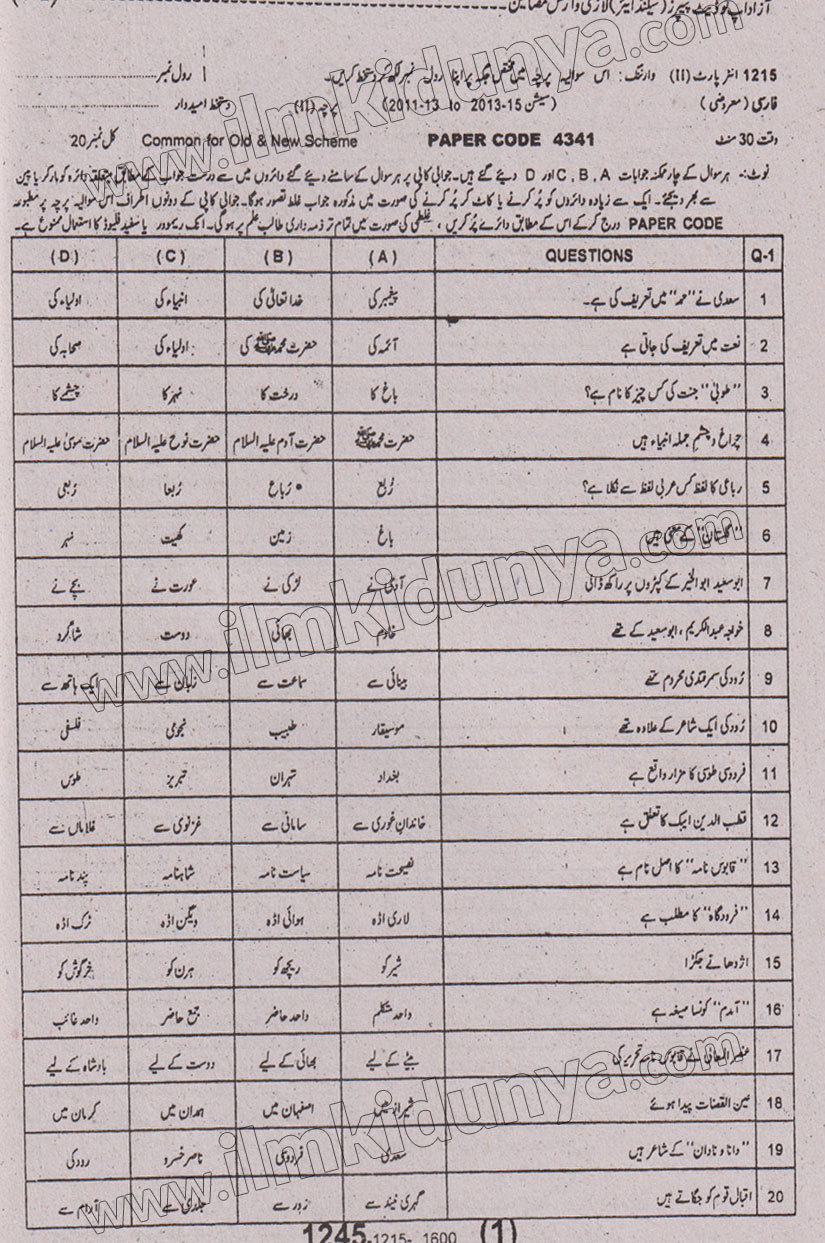 1215 انٹر پارٹ (II) وارننگ: اس سوالیہ پرچہ میں مختص جگہ پر اپنا رول نمبر لکھ کر دستخط کریں۔ رول نمبر
فارسی (معروضی) (سیشن 2013-15 to 2011-13) پرچہ (II) دستخط امیدوار
وقت 30 منٹ PAPER CODE 4341 Common for Old & New Scheme کل نمبر 20
نوٹ:- ہر سوال کے چار ممکنہ جوابات C, B, A اور D دیئے گئے ہیں۔ جوابی کاپی پر ہر سوال کے سامنے دیئے گئے دائروں میں سے درست جواب کے مطابق متعلقہ دائرہ کو مارکر یا پین
سے بھر دیجئے۔ ایک سے زیادہ دائروں کو پُر کرنے یا کاٹ کر پُر کرنے کی صورت میں مذکورہ جواب غلط تصور ہوگا۔ جوابی کاپی کے دونوں اطراف اس سوالیہ پرچہ پر مطبوعہ
PAPER CODE درج کر کے اس کے مطابق دائرے پُر کریں، غلطی کی صورت میں تمام تر ذمہ داری طالب علم پر ہوگی۔ انک ریموور یا سفید فلیوڈ کا استعمال ممنوع ہے۔
Q-1 QUESTIONS (A) (B) (C) (D)
1 سعدی نے "حمد" میں تعریف کی ہے۔ پیغمبر کی خدا تعالیٰ کی انبیاء کی اولیاء کی
2 نعت میں تعریف کی جاتی ہے آئمہ کی حضرت محمد ﷺ کی اولیاء کی صحابہ کی
3 "طوبیٰ" جنت کی کس چیز کا نام ہے؟ باغ کا درخت کا نہر کا چشمے کا
4 چراغ و چشمِ جملہ انبیاء ہیں حضرت محمد ﷺ حضرت آدم علیہ السلام حضرت نوح علیہ السلام حضرت موسیٰ علیہ السلام
5 رباعی کا لفظ کس عربی لفظ سے نکلا ہے؟ رُبع رُباع رُبعا رُبعی
6 "گلستان" کے معنی ہیں باغ زمین کھیت نہر
7 ابو سعید ابوالخیر کے کپڑوں پر راکھ ڈالی آدمی نے لڑکی نے عورت نے بچے نے
8 خواجہ عبدالکریم، ابو سعید کے تھے خادم بھائی دوست شاگرد
9 رُودکی سمرقندی محروم تھے بینائی سے سماعت سے زبان سے ایک ہاتھ سے
10 رُودکی ایک شاعر کے علاوہ تھے موسیقار طبیب نجومی فلسفی
11 فردوسی طوسی کا مزار واقع ہے بغداد تہران تبریز طوس
12 قطب الدین ایبک کا تعلق ہے خاندان غوری سے سامانی سے غزنوی سے غلاماں سے
13 "قابوس نامہ" کا اصل نام ہے نصیحت نامہ سیاست نامہ شاہنامہ پند نامہ
14 "فرودگاہ" کا مطلب ہے لاری اڈہ ہوائی اڈہ ویگن اڈہ ٹرک اڈہ
15 اژدھا نے جکڑا شیر کو ریچھ کو ہرن کو خرگوش کو
16 "آمدم" کونسا صیغہ ہے واحد متکلم واحد حاضر جمع حاضر واحد غائب
17 عنصر المعالی نے قابوس نامہ تحریر کی بیٹے کے لیے بھائی کے لیے دوست کے لیے بادشاہ کے لیے
18 عین القضات پیدا ہوئے شیراز میں اصفہان میں ہمدان میں کرمان میں
19 "دانا و نادان" کے شاعر ہیں سعدی فردوسی ناصر خسرو رودکی
20 اقبال قوم کو جگاتے ہیں گہری نیند سے زور سے جلدی سے آرام سے
1245-1215- 1600 (1)
www.ilmkidunya.com
www.ilmkidunya.com
www.ilmkidunya.com
www.ilmkidunya.com